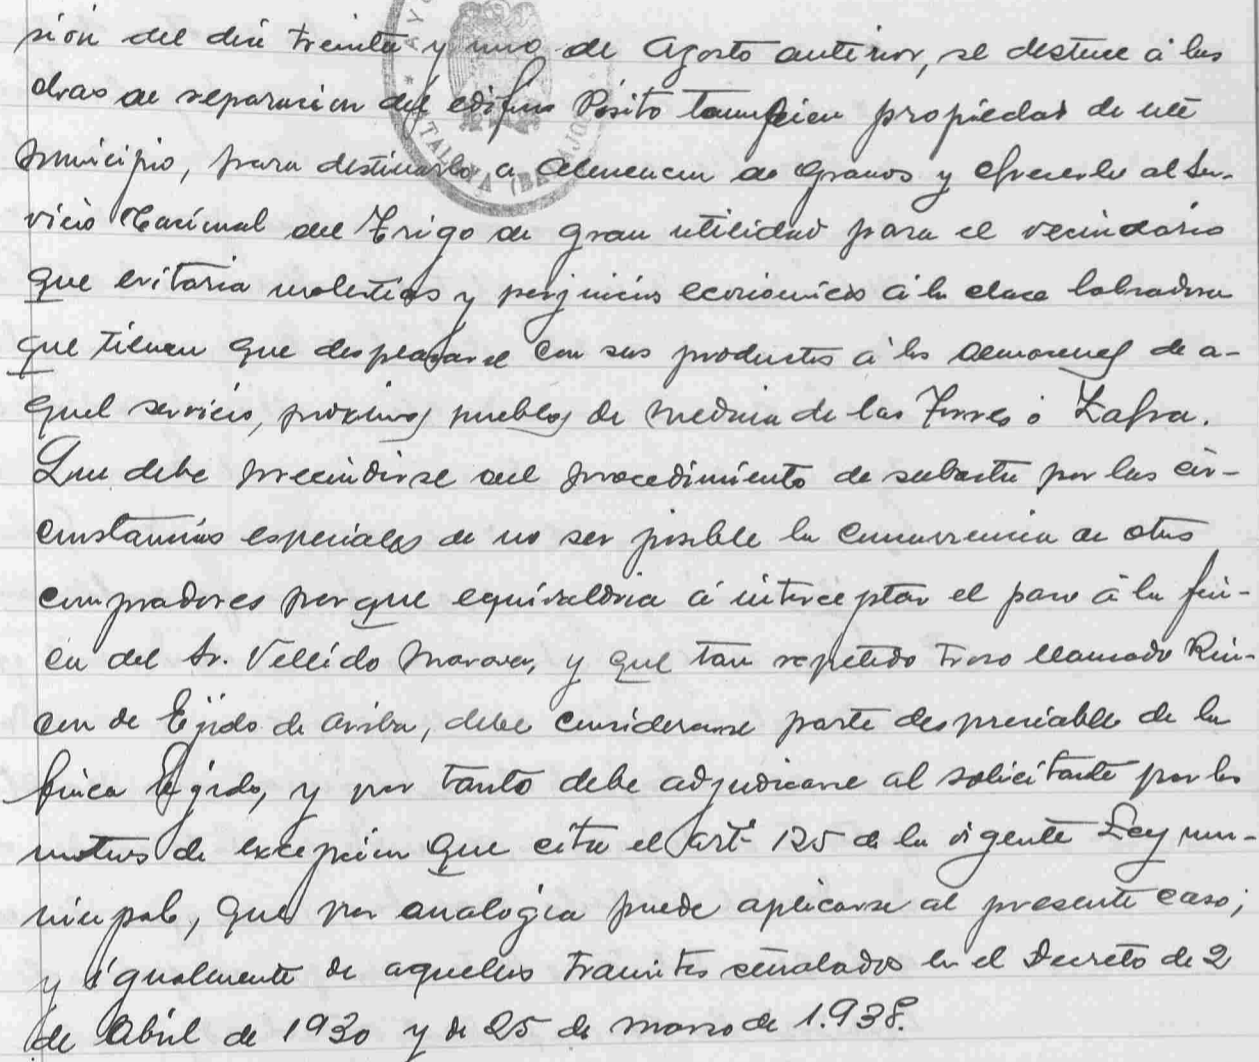 sión del dia treinta y uno de Agosto anterior, se destine á las
obras de reparacion del edificio Pósito tambien propiedad de este
Municipio, para destinarlo a almacen de granos y ofrecerlo al Ser-
vicio Nacional del Trigo de gran utilidad para el vecindario
que evitaria molestias y perjuicios economicos á la clase labradora
que tienen que desplazarse con sus productos á los almacenes de a-
quel servicio, proximos pueblos de Medina de las Torres ó Zafra.
Que debe precindirse del procedimiento de subasta por las cir-
cunstancias especiales de no ser posible la concurrencia de otros
compradores porque equivaldria á interceptar el paso á la fin-
ca del Sr. Vellido y que tan repetido trozo llamado Rin-
con de Ejido de Arriba, debe considerarse parte despreciable de la
finca Ejido, y por tanto debe adjudicarse al solicitante por los
motivos de excepcion que cita el artº 125 de la vigente Ley mu-
nicipal, que por analogia puede aplicarse al presente caso;
y igualmente de aquellos tramites señalados en el Decreto de 2
de Abril de 1930 y de 25 de Marzo de 1.938.